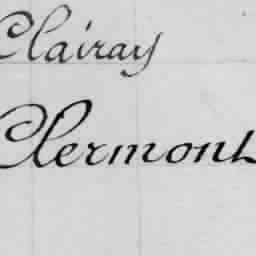 Clairay
Clermont